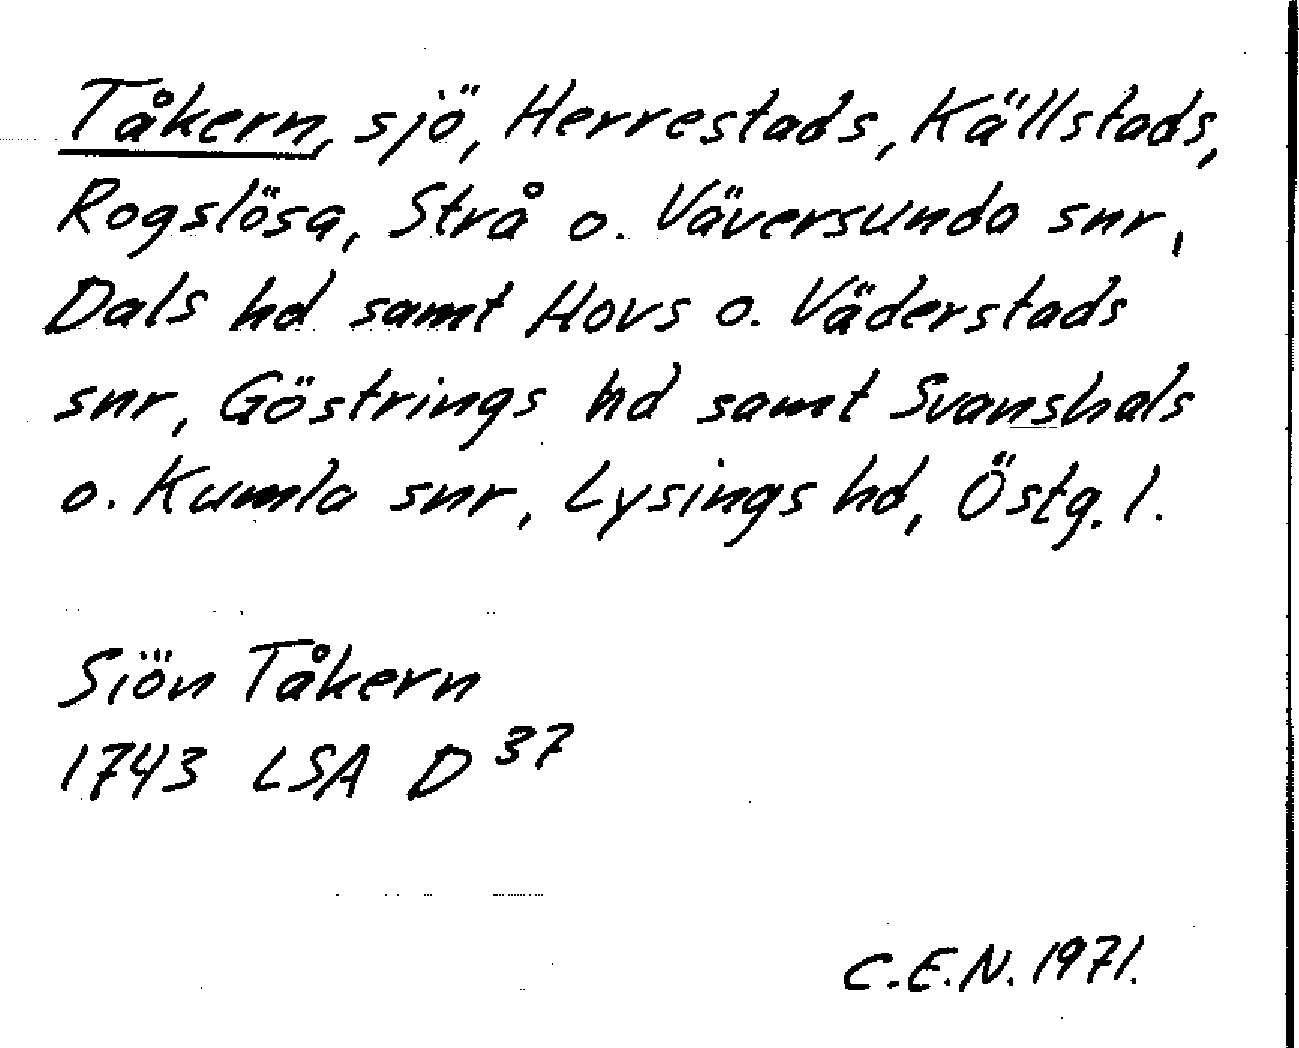 Tåkern, sjö, Herrestads, Källstads,
Rogslösa, Strå o. Väversunda snr,
Dals hd samt Hovs o. Väderstads
snr, Göstrings hd samt Svanshals
o. Kumla snr, Lysings hd, Östg. l.
Siön Tåkern
1743 LSA D 37
C.E.N. 1971.